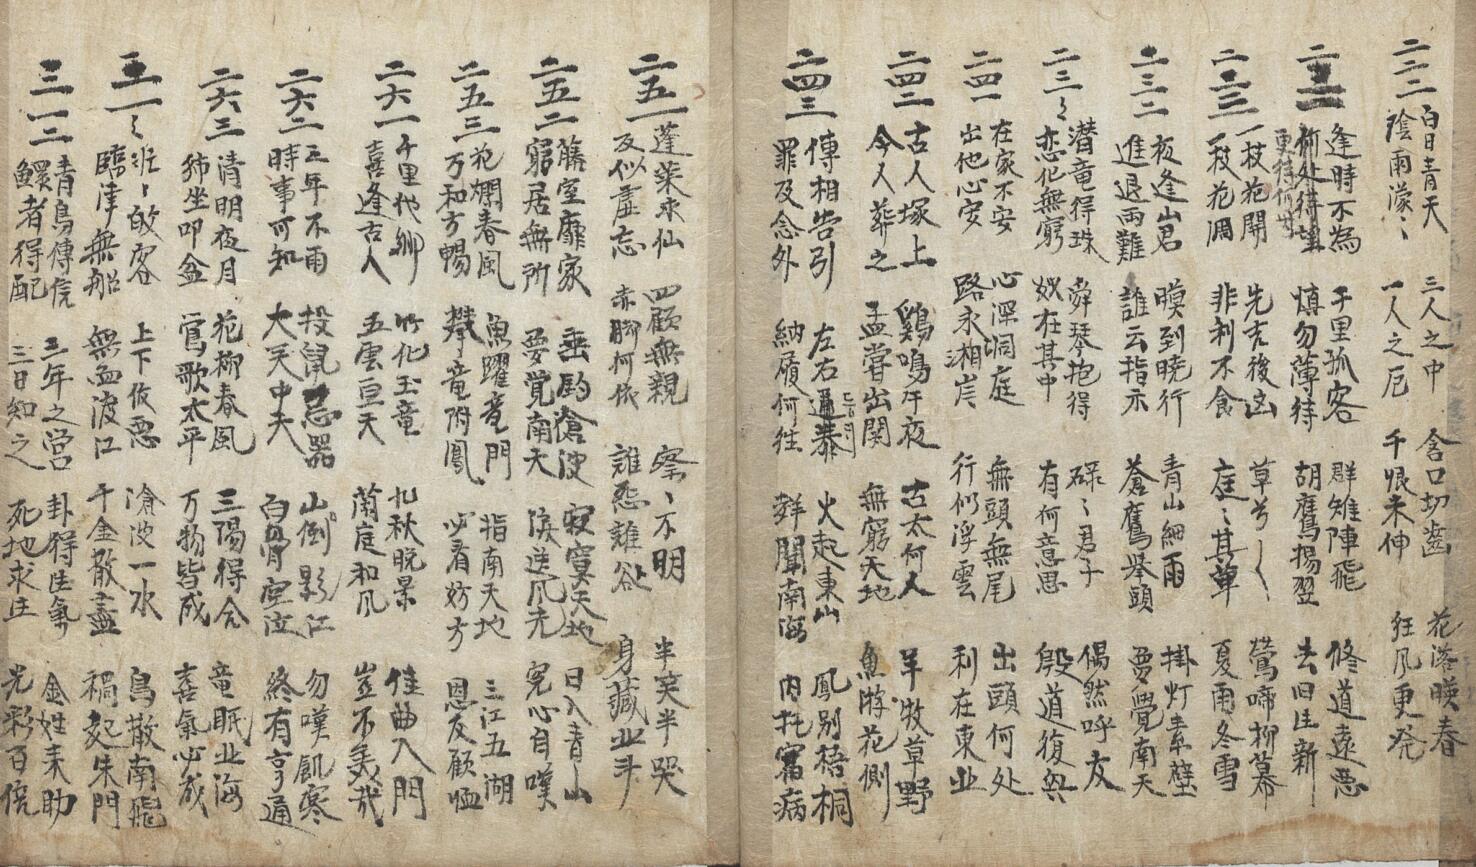 二二二
白日青天 三人之中 含口切齒 花落暎春
陰雨濛〻 一人之厄 千恨未伸 狂风更発
逢時不為 千里孤客 群雉陣飛 修道遠惡
慎勿薄待 胡鷹揚翌 去旧生新
一枝花開 先吉後凶 草兮〻〻 鶯啼柳幕
一枝花凋 非利不食 庭〻其草 夏雨冬雪
二三二
夜逢山君 暯到曉行 青山細雨 掛灯素壁
進退両難 誰云指示 蒼鷹举頭 夢覺南天
二三〻
潜竜得珠 舜琴抱得 碌〻君子 偶然呼友
恋化無窮 在其中 有何意思 殷道復興
二四一
在家不安 心深洞庭 無頭無尾 出頭何处
出他心安 路永湘岸 行似浮雲 利在東业
二四二
古人塚上 鷄鳴午夜 古太何人 羊牧草野
今人葬之 孟嘗出関 無窮天地 魚游花側
二四三
傳相告引 左右通 火起東山 鳳别梧桐
罪及念外 納履何往 聞南海 内托宿病
二五一
蓬莱求仙 四顧無親 察〻不明 半笑半哭
反似虚忘 赤脚何依 誰怨誰咎 身藏业斗
二五二
蔭堂靡家 垂釣滄波 寂寞天地 日入青山
窮居無所 夢覺南天 淚送风光 寃心自嘆
二五三
花爛春風 魚躍竜門 指南天地 三江五湖
万和方暢 攀竜附鳳 必看妨方 恩友顧恤
二六一
千里他鄉 竹化玉竜 九秋晩景 佳曲入門
喜逢古人 五雲亘天 蘭庭和风 豈不美哉
二六二
三年不雨 投鼠忌器 山倒影江 勿嘆飢寒
時事可知 大天中夫 白骨空泣 終有亨通
二六三
清明夜月 花柳春風 三陽得合 竜眠业海
坐叩盆 鶯歌太平 万物皆成 喜氣必成
三一〻
班〻故客 上下佼惡 滄波一水 鳥散南飛
臨津無船 無血渡江 千金散盡 禍起朱門
三一二
青鳥傳信 三年之営 卦得生氣 金姓来助
鰥者得配 三日知之 死地求生 光彩百倍